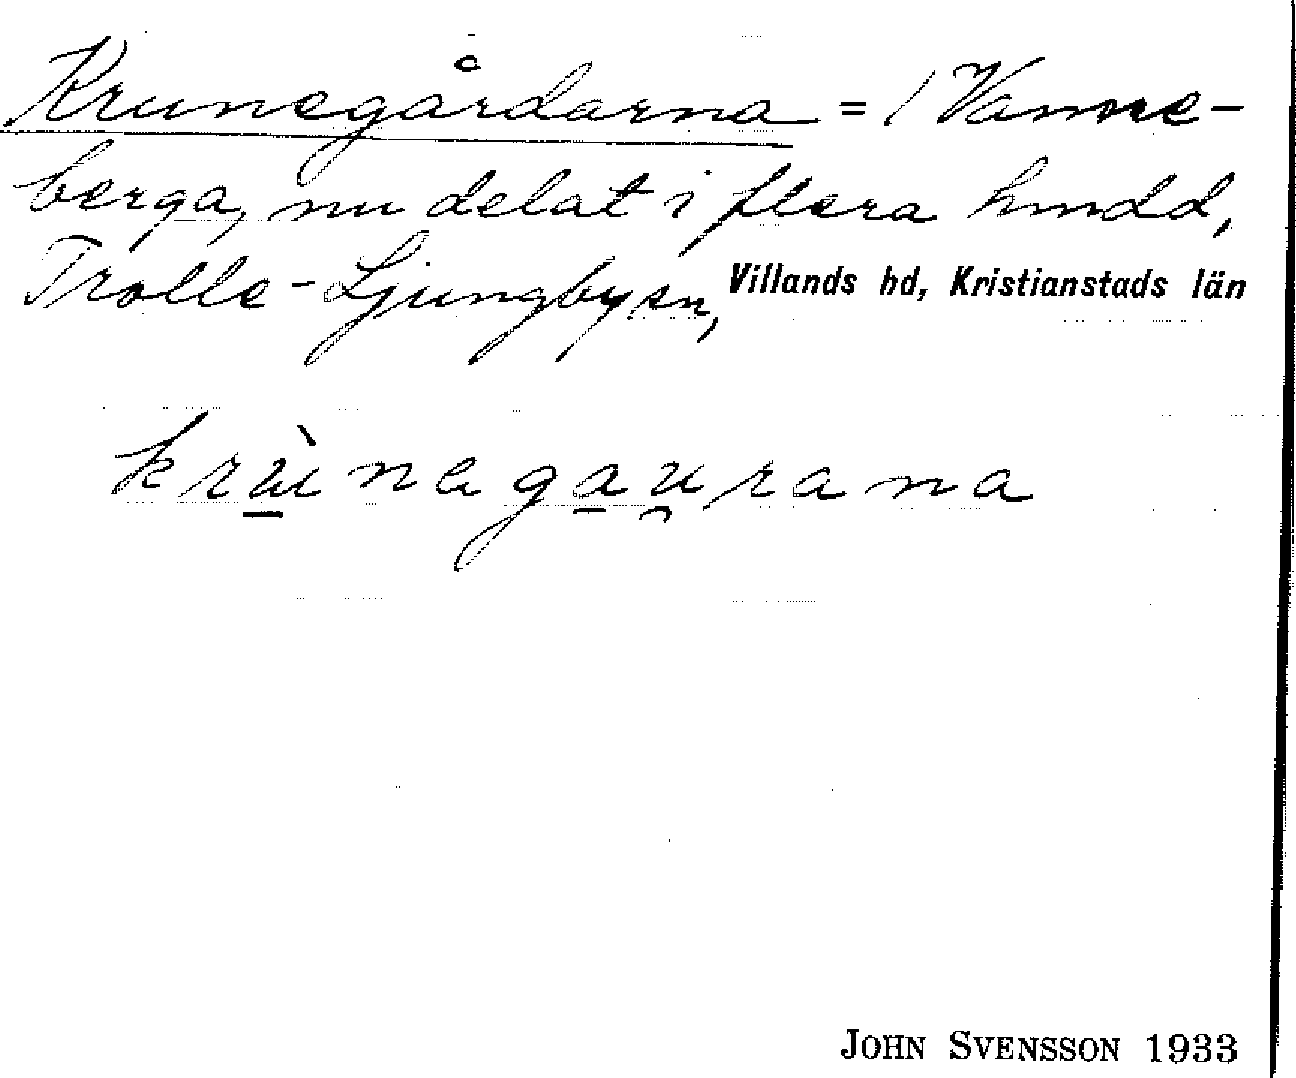 Krunegårdarna = 1 Vanne-
berga, nu delat i flera hmdd,
Trolle-Ljungby sn, Villands hd, Kristianstads län
krùnagaurana
JOHN SVENSSON 1933